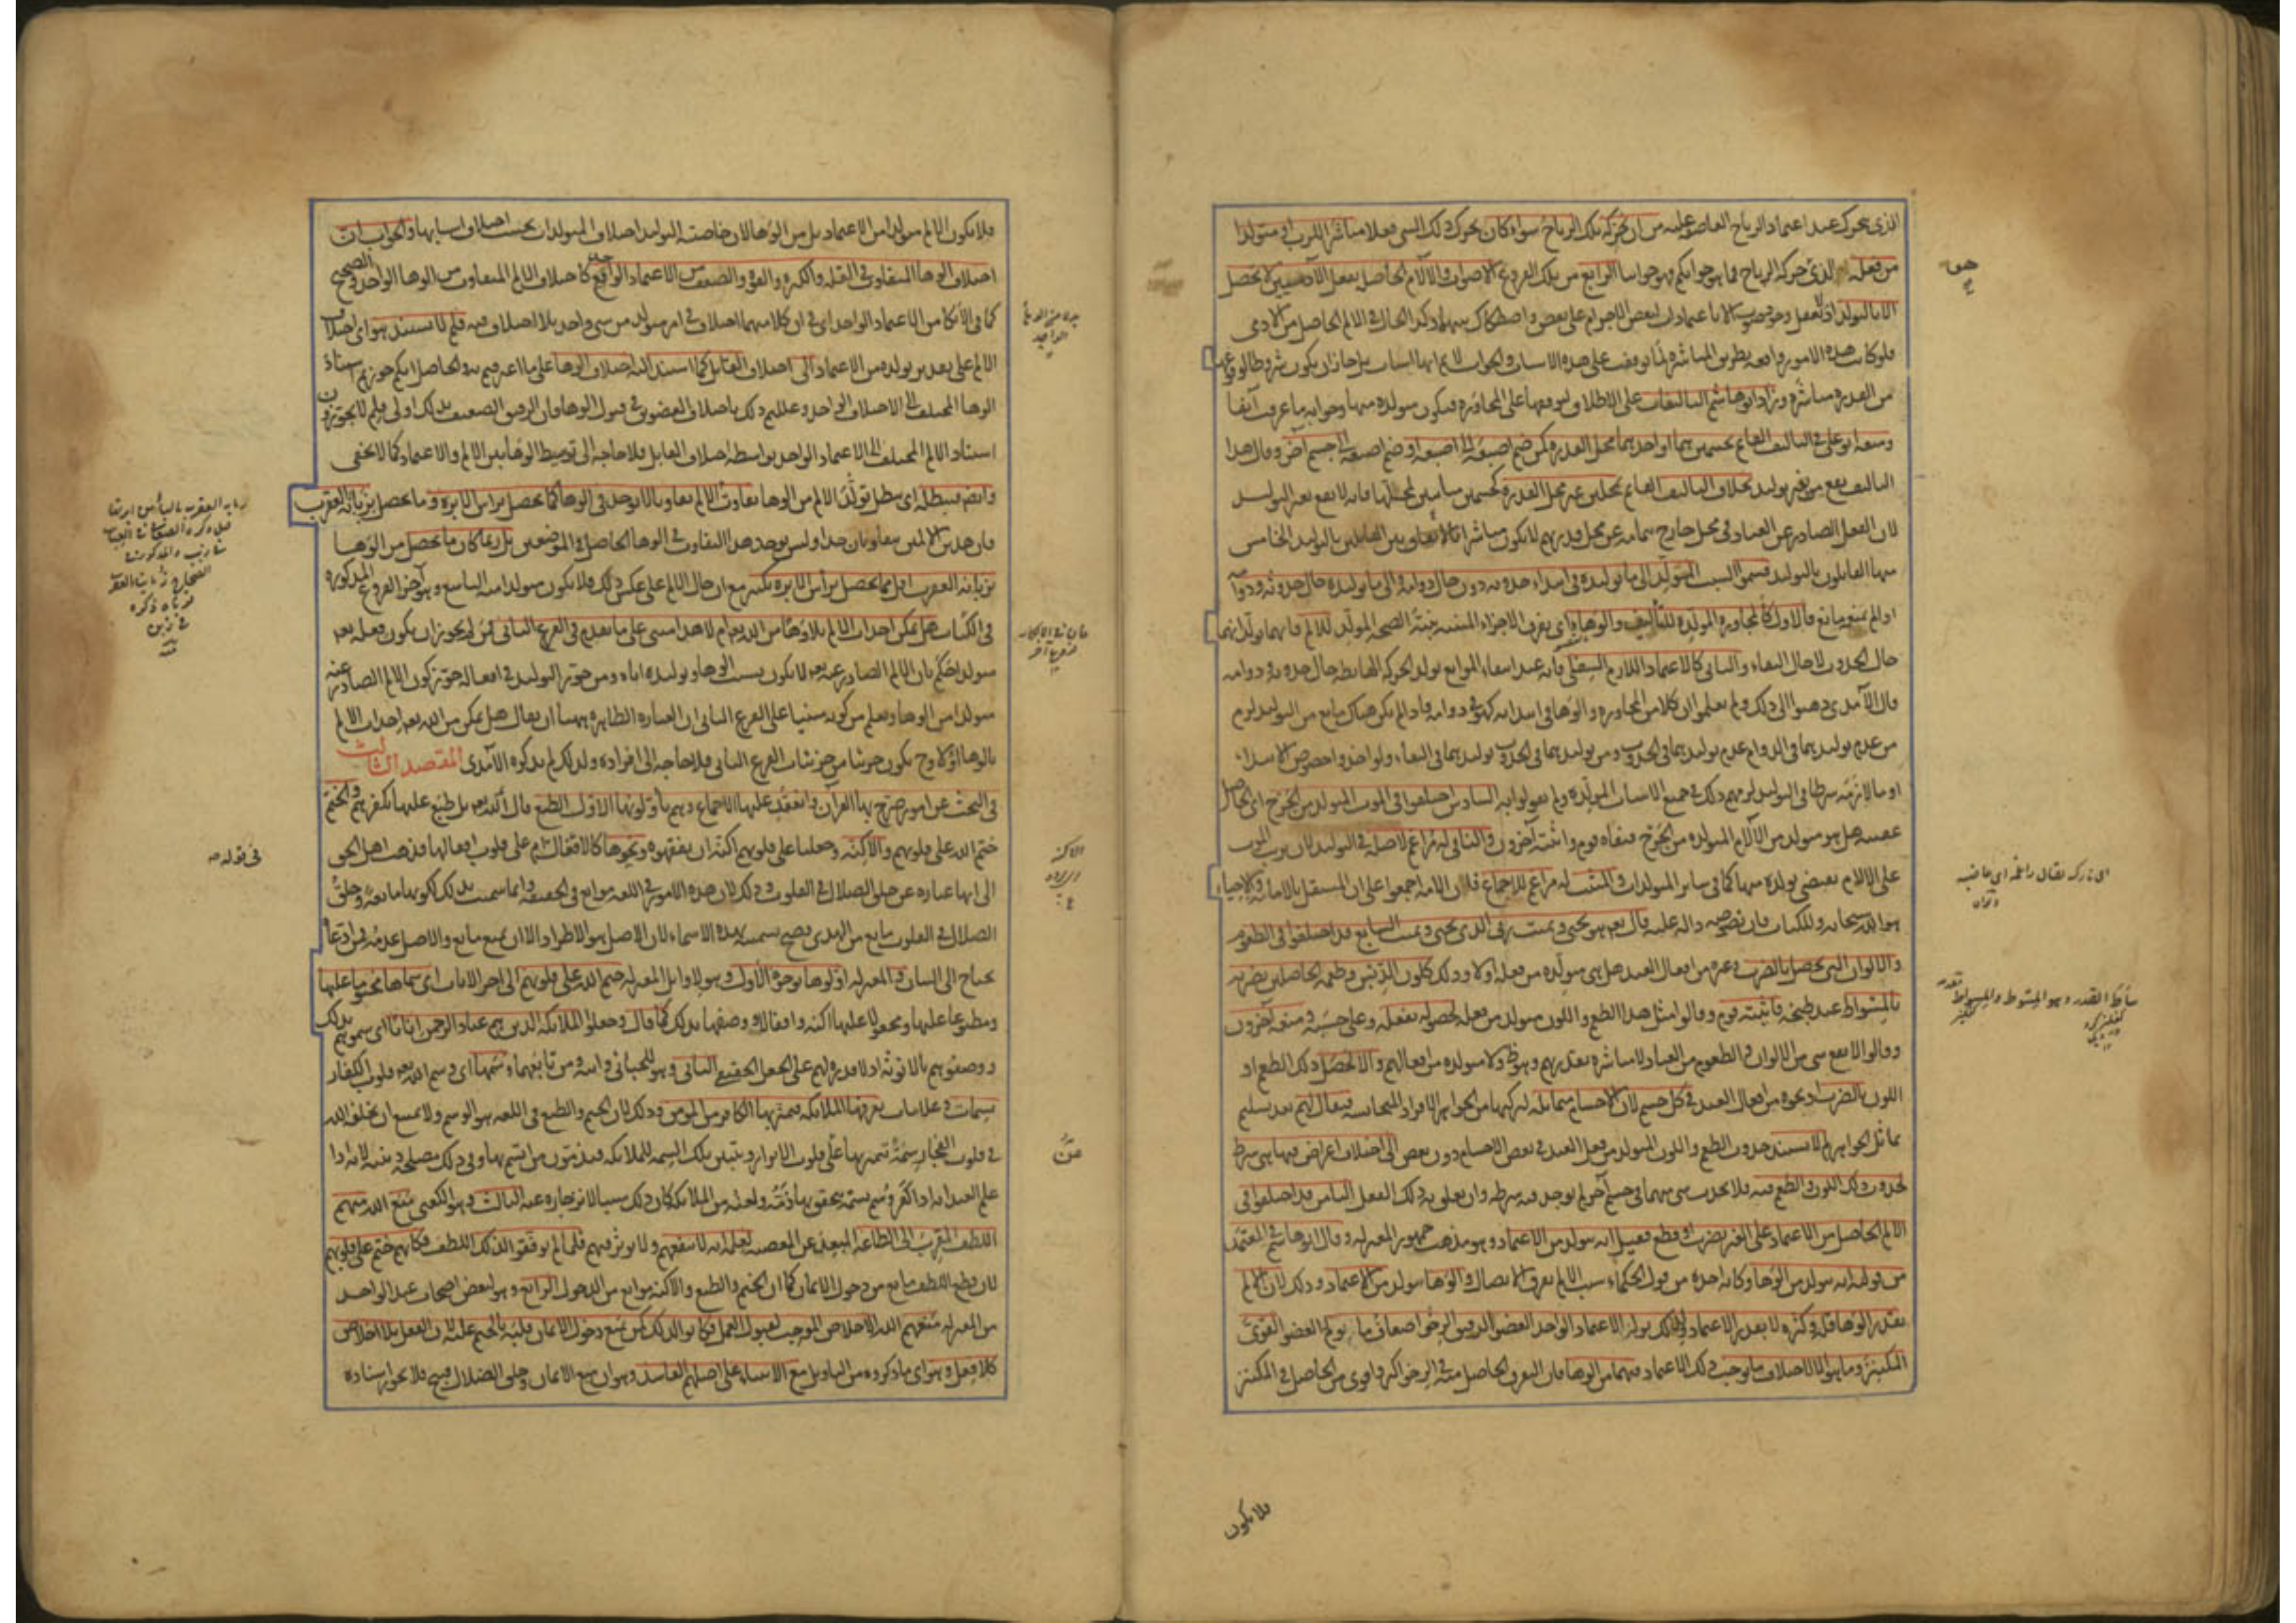 الذي يتحرك عند اعتماد الرياح العاصفة عليه من ان تحركه تلك الرياح سواء كان تحرك ذلك الشيء فعلا مباشرا للرب او متولدا
من فعله الذي حركة الرياح فما هو جوابكم فهو جوابنا الرابع من تلك الفروع الاصوات والآلام الحاصلة بفعل الآدميين لا تحصل
الا بالتولد اذ لا يعقل وجود صوت الا باعتمادات لبعض الاجرام على بعض واصطكاك بينهما وكذا الحال في الالم الحاصل من الآدمي
فلو كانت هذه الامور واقعة بطريق المباشرة لما توقفت على هذه الاسباب والجواب لا نم انها اسباب بل جاز ان يكون شروطا لوقوعها
من القدرة مباشرة وزاد ابو هاشم التأليفات على الاطلاق لوقوعها على المجاورة فيكون متولدة منها وجوابه ما عرفت آنفا
ومنعه ابو على في التأليف القائم بجسمين هما او احدهما محل القدرة كمن ضم اصبعه الى اصبعه او ضم اصبعه الى جسم آخر وقال هذا
التأليف يقع من غير توليد بخلاف التأليف القائم بمحلين غير محل القدرة كجسمين مباينين لمحلها فانه لا يقع بغير التوليد
لان الفعل الصادر عن العباد في محل خارج عن محل قدرتهم لا يكون مباشرا بالاتفاق بين القائلين بالتوليد الخامس
منها القائلون بالتوليد قسموا السبب المولد الى ما توليده في ابتداء حدوثه دون حال دوامه والى ما توليده حال حدوثه ودوامه
اذا لم يمنع مانع فالاول كالمجاورة المولدة للتأليف والوهاء اي تفرق الاجزاء المبتنية بنية الصحة المولد للالم فانهما يولدانهما
حال الحدوث لا حال البقاء والثاني كالاعتماد اللازم السفلى فانه عند انتفاء الموانع يولد الحركة الهابطة حال حدوثه ودوامه
قال الآمدي ذهبوا الى ذلك ولم يعلموا ان كلا من المجاورة والوهاء في ابتدائه كهو في دوامه فاذا لم يكن هناك مانع من التوليد لزم
من عدم توليدهما في الدوام عدم توليدهما في الحدوث ومن توليدهما في الحدوث توليدهما في البقاء ولو اخذوا خصوص الابتداء
او ما لازمه شرطا في التوليد لزمهم ذلك في جميع الاسباب المولدة ولم يقولوا به السادس اختلفوا في الموت المتولد من الجرح اي الحاصل
عقيبه هل هو متولد من الآلام المتولدة من الجرح فنفاه قوم واثبته آخرون والنافي له مراغم لاصله في التوليد لان ترتب الموت
على الآلام يقتضي تولده منها كما في سائر المتولدات والمثبت له مراغم للاجماع فان الامة اجمعوا على ان المستقل بالاماتة والاحياء
هو الله سبحانه وللكتاب فان نصوصه دالة عليه قال تعم هو يحيي ويميت ربي الذي يحيي ويميت السابع قد اختلفوا في الطعوم
والالوان التي تحصل بالضرب وغيره من افعال العبد هل هي متولدة من فعله اولا وذلك كلون الدبس وطعمه الحاصلين بضربه
بالمسواط عند طبخه فاثبته قوم وقالوا مثل هذا الطعم واللون متولد من فعله لحصوله بفعله وعلى حسبه ومنعه آخرون
وقالوا لا يقع شيء من الالوان والطعوم من العباد لا مباشرة بقدرتهم وهو ظ ولا متولدة من افعالهم والا لحصل ذلك الطعم او
اللون بالضرب او نحوه من افعال العبد في كل جسم لان الاجسام متماثلة لتركبها من الجواهر الافراد المتجانسة فيقال لهم بعد تسليم
تماثل الجواهر لم لا يستند حدوث الطعم واللون المتولد من فعل العبد في بعض الاجسام دون بعض الى اختلاف اعراض فيها هي شرط
لحدوث ذلك اللون والطعم فيه فلا يحدث شيء منهما في جسم آخر لم يوجد فيه شرطه وان تعلق به ذلك الفعل الثامن قد اختلفوا في
الالم الحاصل من الاعتماد على الغير بضرب او قطع فقيل انه متولد من الاعتماد وهو مذهب جمهور المعتزلة وقال ابو هاشم في المعتمد
من قوليه انه متولد من الوهاء وكانه اخذه من قول الحكماء سبب الالم تفرق الاتصال والوهاء متولد من الاعتماد وذلك لان الالم
بقدر الوهاء قلة وكثرة لا بقدر الاعتماد ولذلك يولد الاعتماد الواحد العضو الرقيق الرخو اضعاف ما يولم العضو القوي
المكتنز وما هو الا لاختلاف ما يوجبه ذلك الاعتماد فيهما من الوهاء فان التفرق الحاصل منه في الرخو اكثر واقوى من الحاصل في المكتنز
فلا يكون
فلا يكون الالم متولدا من الاعتماد بل من الوهاء لان خاصية التوليد اختلاف المتولدات بحسب اختلاف اسبابها والجواب ان
اختلاف الوهاء المتفاوت في القلة والكثرة والقوة والضعف من الاعتماد الواقع كاختلاف الالم المتفاوت من الوهاء الواحد
كما في الآلام من الاعتماد الواحد اي في ان كلا منهما اختلاف في امر متولد من شيء واحد بلا اختلاف فيه فلم لا يستند هو اي اختلاف
الالم على تقدير تولده من الاعتماد الى اختلاف القابل كما استند اليه اختلاف الوهاء على ما اعترفتم به والحاصل انكم جوزتم اسناد
الوهاء المختلف الى الاعتماد الواحد وعللتم ذلك باختلاف العضوين في قبول الوهاء فان الرقيق الضعيف بذلك اولى فلم لا تجوزون
اسناد الالم المختلف الى الاعتماد الواحد بواسطة اختلاف القابل فلا حاجة الى توسيط الوهاء بين الالم والاعتماد كما لا يخفى
وايضا فيبطله اي يبطل تولد الالم من الوهاء تفاوت الالم تفاوتا لا يوجد في الوهاء كما يحصل براس الابرة وما يحصل بزبانة العقرب
فان هذين الالمين متفاوتان جدا وليس يوجد هذا التفاوت في الوهاء الحاصل في الموضعين بل ربما كان ما يحصل من الوهاء
بزبانة العقرب اقل مما يحصل براس الابرة بكثير مع ان حال الالم على عكس ذلك فلا يكون متولدا منه التاسع وهو آخر الفروع المذكورة
في الكتاب هل يمكن احداث الالم بلا وهاء من الله تعم ام لا هذا مبني على ما تقدم في الفرع الثاني فمن لم يجوز ان يكون فعله تعم
متولدا حكم بان الالم الصادر عنه تعم لا يكون بسبب الوهاء وتوليده اياه ومن جوز التوليد في افعاله جوز كون الالم الصادر عنه
متولدا من الوهاء ويعلم من كونه مبنيا على الفرع الثاني ان العبارة الظاهرة ههنا ان يقال هل يمكن من الله تعم احداث الالم
بالوهاء اولا وح يكون جزئيا من جزئيات الفرع الثاني فلا حاجة الى افراده ولذلك لم يذكره الآمدي المقصد الثالث
في البحث عن امور صرح بها القرآن وانعقد عليها الاجماع وهم يأولونها الاول الطبع قال الله تعم بل طبع عليها بكفرهم والختم
ختم الله على قلوبهم والاكنة وجعلنا على قلوبهم اكنة ان يفقهوه ونحوها كالاقفال ام على قلوب اقفالها فذهب اهل الحق
الى انها عبارة عن خلق الضلال في القلوب وذلك لان هذه الامور في اللغة موانع في الحقيقة وانما سميت بذلك لكونها مانعة وخلق
الضلال في القلوب مانع من الهدى فصح تسميته بهذه الاسماء لان الاصل هو الاطراد الا ان يمنع مانع والاصل عدمه فمن ادعاه
يحتاج الى البيان والمعتزلة اولوها بوجوه الاول وهو لاوائل المعتزلة ختم الله على قلوبهم الى آخر الآيات اي سماها مختوما عليها
ومطبوعا عليها ومجعولا عليها اكنة واقفالا ووصفها بذلك كما قال وجعلوا الملائكة الذين هم عباد الرحمن اناثا اي سموهم بذلك
ووصفوهم بالانوثة اذ لا قدرة لهم على الجعل الحقيقي الثاني وهو للجبائي وابنه ومن تابعهما وسمها اي وسم الله تعم قلوب الكفار
بسمات وعلامات يعرفها الملائكة فيتميز بها الكافر من المؤمن وذلك لان الختم والطبع في اللغة هو الوسم ولا يمتنع ان يخلق الله
في قلوب الفجار سمة تميز بها على قلوب الابرار ويتبين بتلك السمة للملائكة فيذمون من اتسم بها وفي ذلك مصلحة دينية لانه اذا
علم العبد انه اذا كفر وسم بسمة يتحقق بها ذمه ولعنه من الملائكة كان ذلك سببا لانزجاره عنه الثالث وهو الكعبي منع الله منهم
اللطف المقرب الى الطاعة المبعد عن المعصية لعلمه انه لا ينفعهم ولا يؤثر فيهم فلما لم يوفقوا لذلك اللطف فكانهم ختم على قلوبهم
لان قطع اللطف مانع من دخول الايمان كما ان الختم والطبع والاكنة موانع من الدخول الرابع وهو لبعض اصحاب عبد الواحد
من المعتزلة منعهم الله الاخلاص الموجب لقبول العمل فكانوا لذلك كمن يمنع دخول الايمان قلبه بالختم عليه لان الفعل بلا اخلاص
كلا فعل وهو اي ما ذكروه من التأويل مع الابتناء على اصلهم الفاسد وهو ان منع الايمان وخلق الضلال قبيح فلا يجوز اسناده